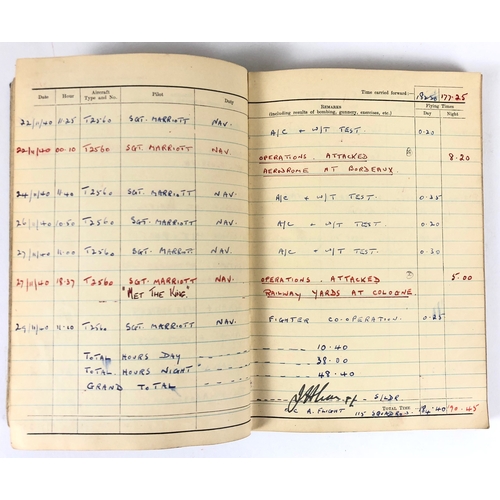 Time carried forward:— 177.25
Date Hour Aircraft Type and No. Pilot Duty REMARKS (including results of bombing, gunnery, exercises, etc.) Flying Times Day Night
22/11/40 11.25 T2560 SGT. MARRIOTT NAV. A/C + W/T TEST 0.20
22/11/40 00.10 T2560 SGT. MARRIOTT NAV. OPERATIONS. ATTACKED 8.20
AERODROME AT BORDEAUX
24/11/40 11.40 T2560 SGT. MARRIOTT NAV. A/C + W/T TEST 0.35
26/11/40 10.50 T2560 SGT. MARRIOTT NAV. A/C + W/T TEST. 0.20
27/11/40 11.00 T2560 SGT. MARRIOTT NAV. A/C + W/T TEST. 0.30
27/11/40 18.37 T2560 SGT. MARRIOTT NAV. OPERATIONS. ATTACKED 5.00
"MET THE KING" RAILWAY YARDS AT COLOGNE.
29/11/40 T2560 SGT. MARRIOTT NAV. FIGHTER CO-OPERATION. 0.25
TOTAL HOURS DAY 10.40
TOTAL HOURS NIGHT 38.00
GRAND TOTAL 48.40
S/LDR
O/C A. FLIGHT 115 SQUADRON
TOTAL TIME 184.40 190.45